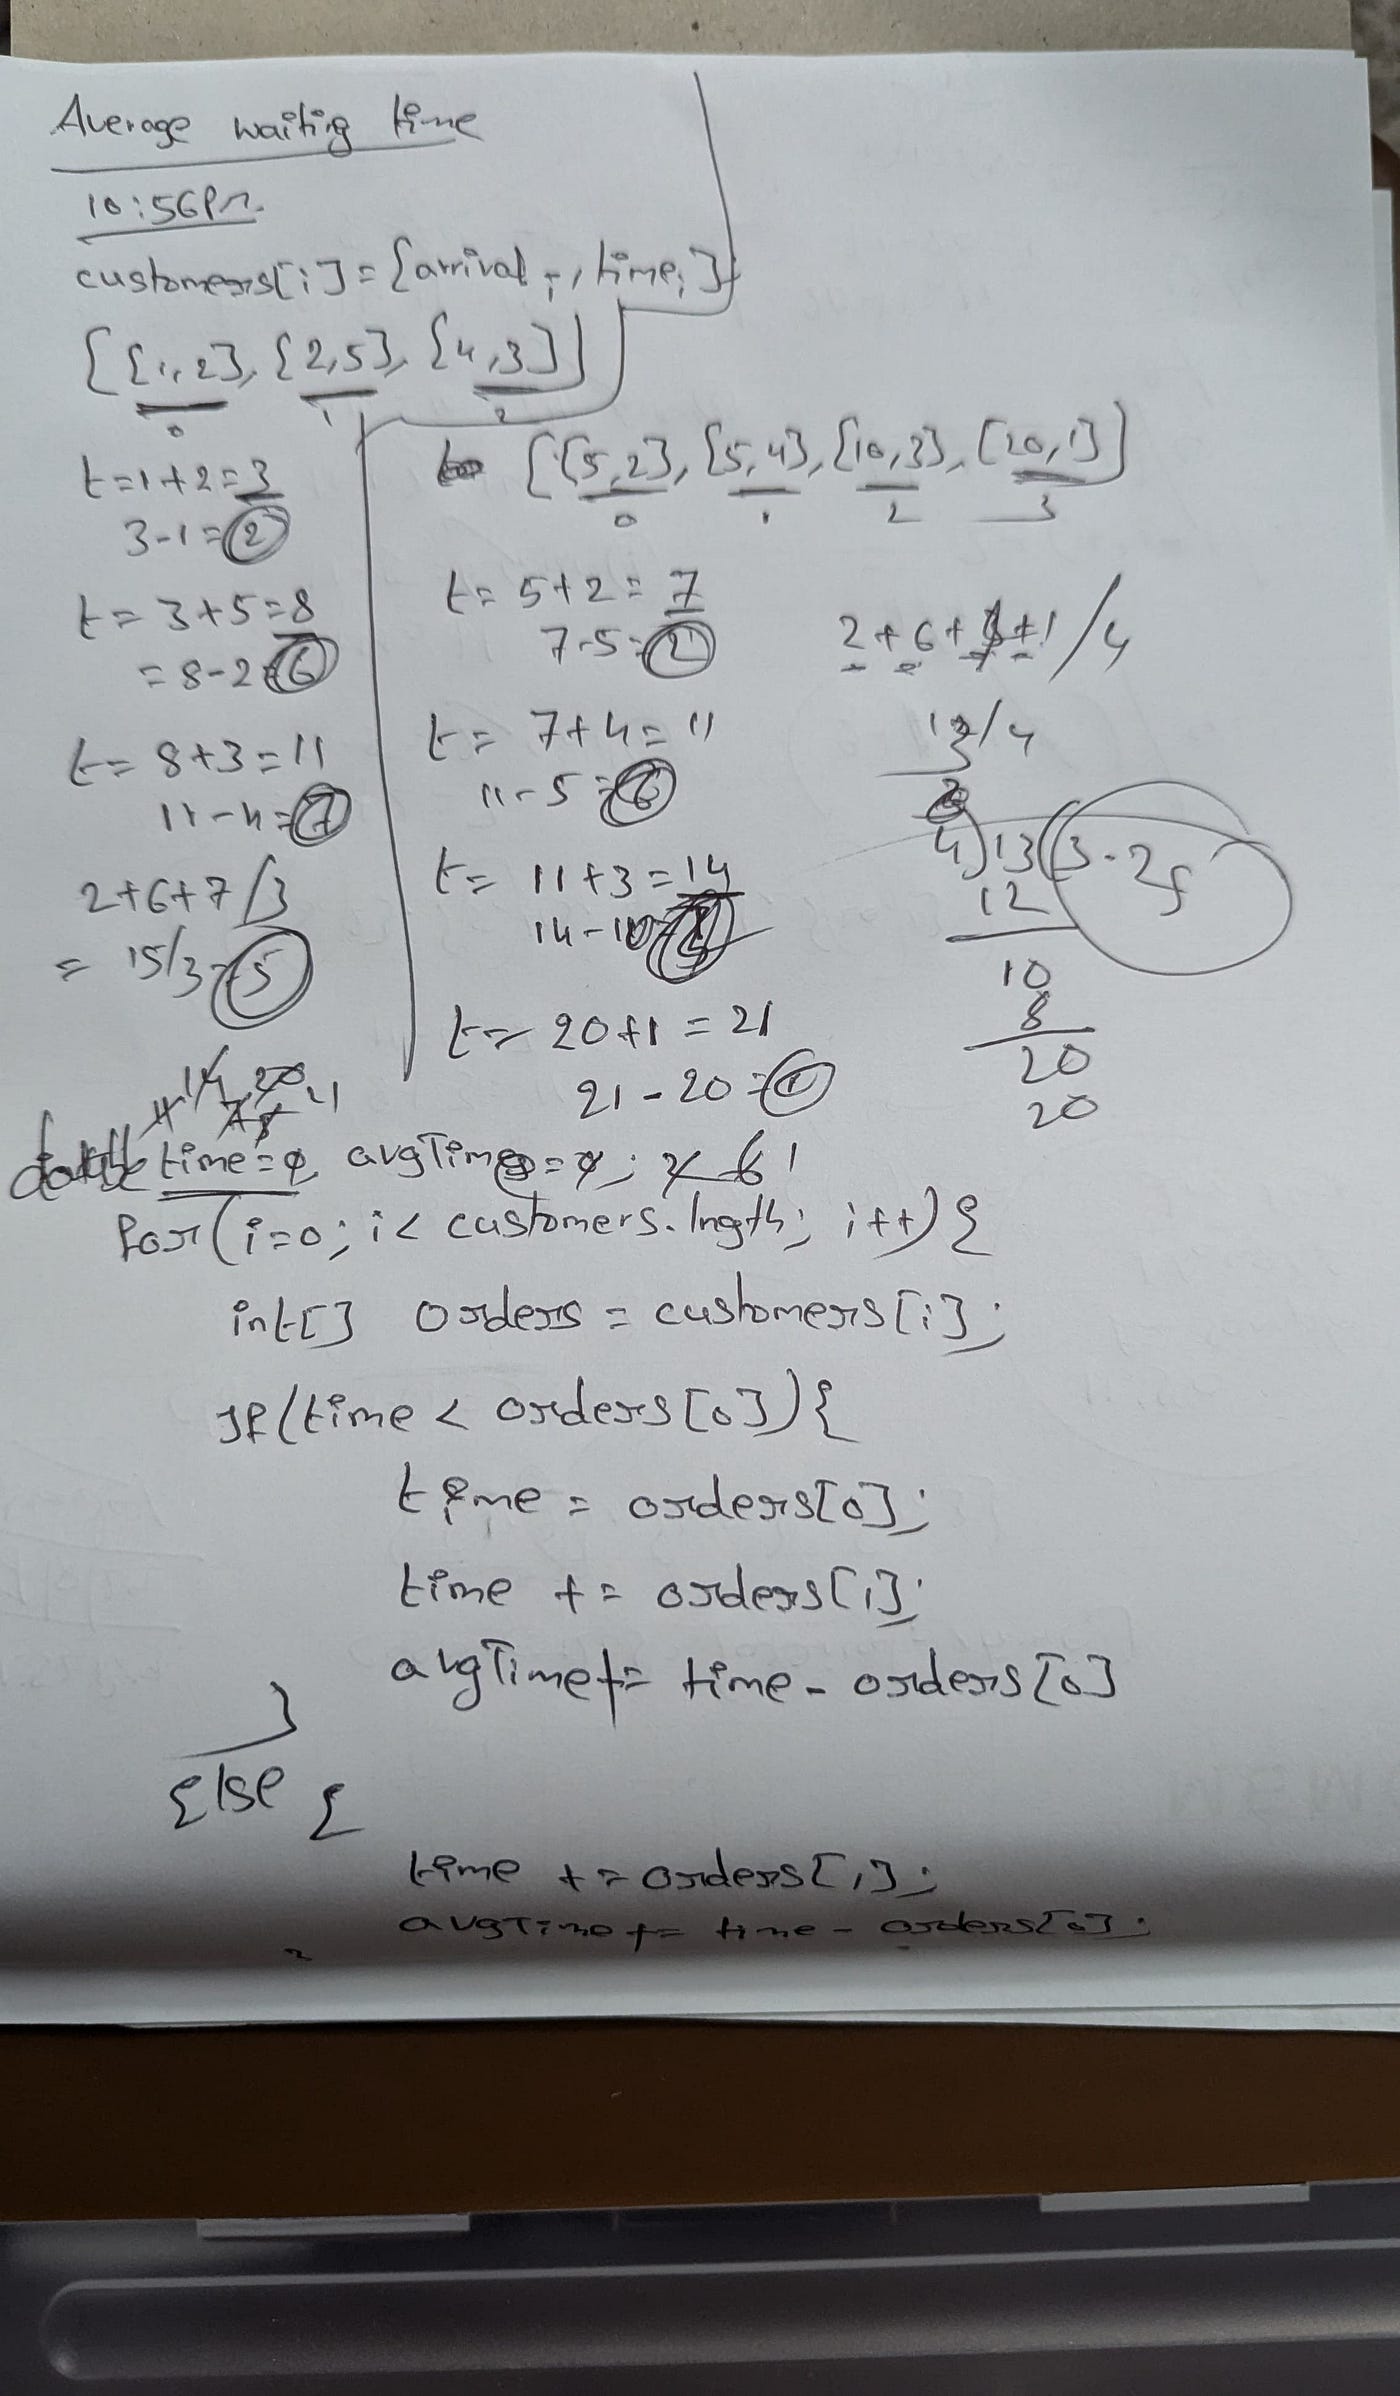 Average waiting time
10:56Pm
customers[i] = {arrival i, time i}
[{1,2}, {2,5}, {4,3}]
0 1 2
t=1+2=3
3-1=2
t= 3+5=8
=8-2=6
t= 8+3=11
11-4=7
2+6+7/3
= 15/3=5
[{5,2}, {5,4}, {10,3}, {20,1}]
0 1 2 3
t= 5+2= 7
7-5=2
t= 7+4=11
11-5=6
t= 11+3=14
14-10=4
t= 20+1=21
21-20=1
2+6+4+1/4
13/4
4)13(3.25
12
10
8
20
20
11 14 20 21
double time=0, avgTime=0;
for(i=0; i< customers.lngth; i++){
int[] orders = customers[i];
If(time < orders[0]){
time = orders[0];
time += orders[1];
avgTime+= time- orders[0]
}
Else {
time += orders[1];
avgTime+= time - orders[0];